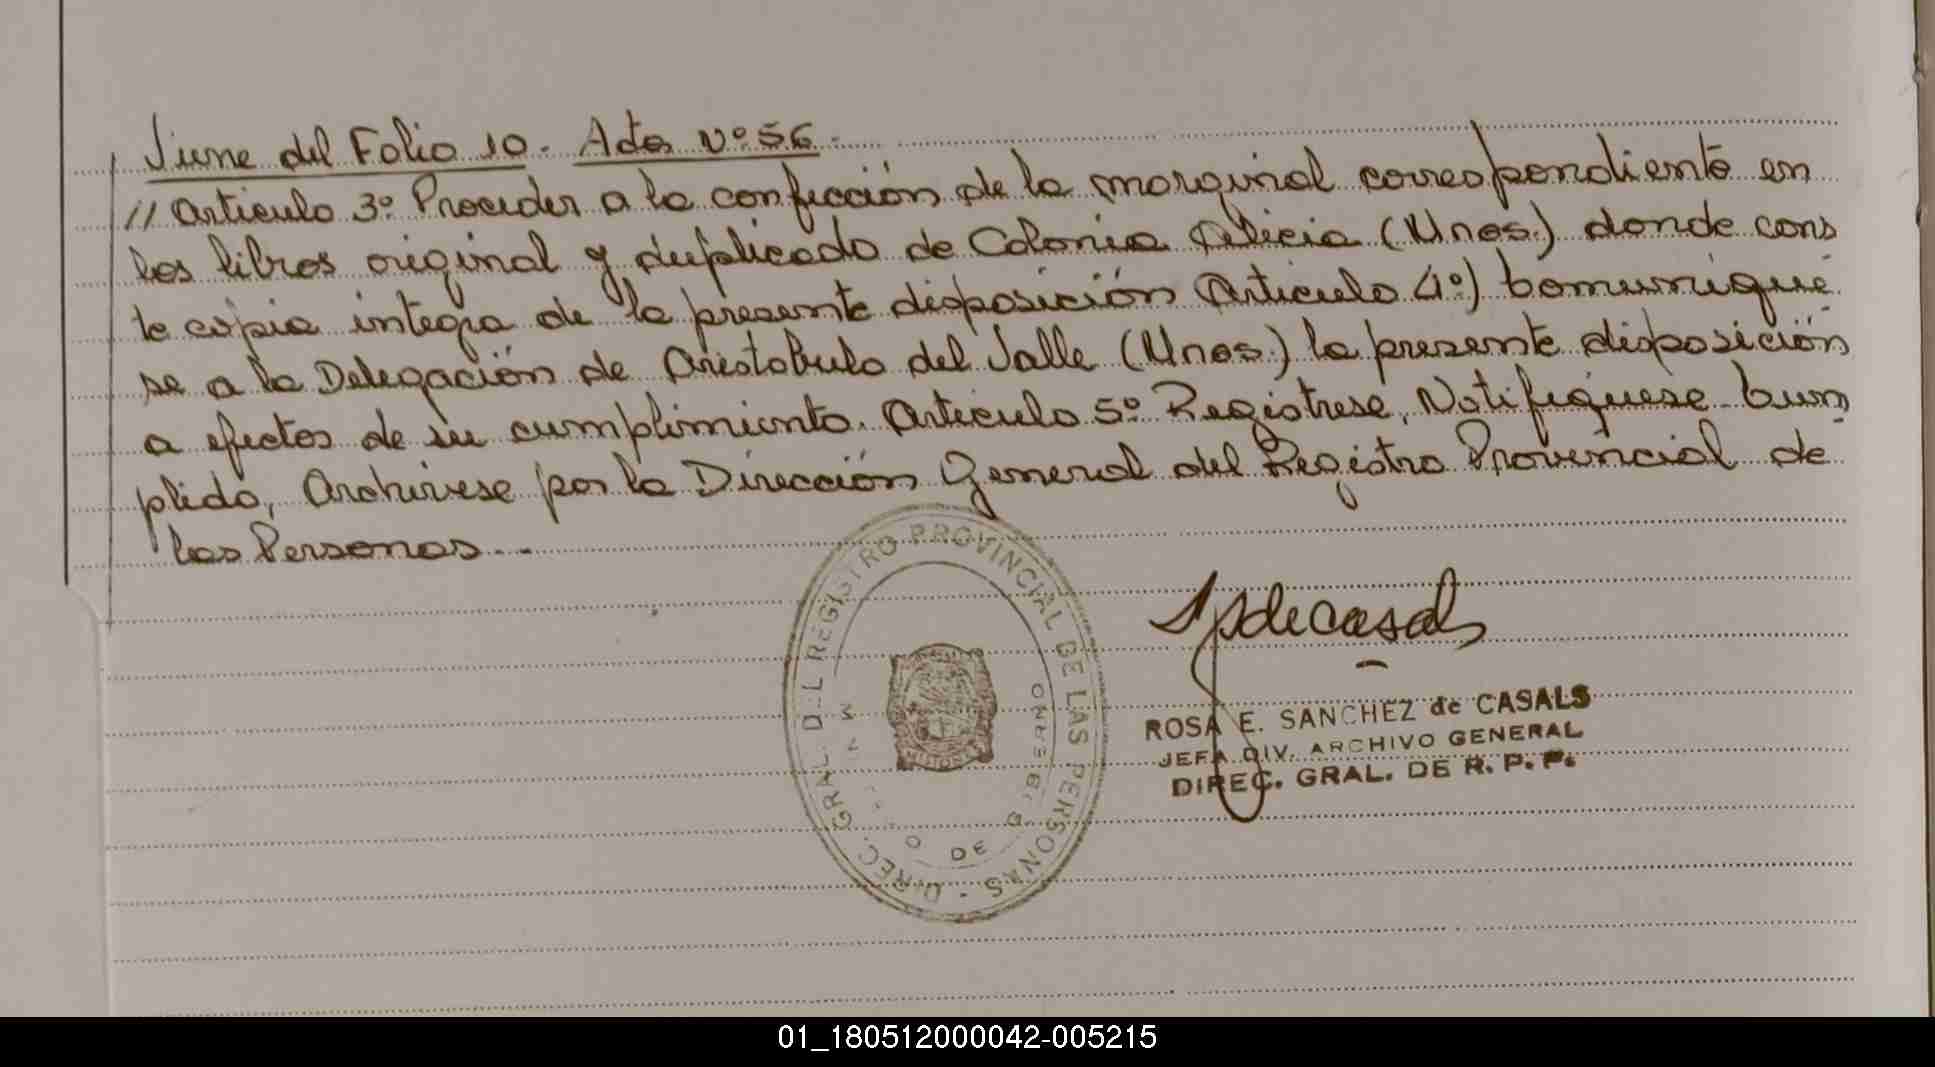 Viene del Folio 10. Acta Nº 56.
// Articulo 3º Proceder a la confección de la marginal correspondiente en
los libros original y duplicado de Colonia Alicia (Mnes.) donde cons
te cópia integra de la presente disposición Articulo 4º) Comuniqué
se a la Delegación de Aristobulo del Valle (Mnes.) la presente disposición
a efectos de su cumplimiento. Articulo 5º Registrese, Notifiquese Cum
plido, Archivese por la Dirección General del Registro Provincial de
las Personas..-
DIREC. GRAL. D L REGISTRO PROVINCIAL DE LAS PERSONAS -
DE
GOBIERNO
ROSA E. SANCHEZ de CASALS
JEFA DIV. ARCHIVO GENERAL
DIREC. GRAL. DE R. P. P.
01_180512000042-005215